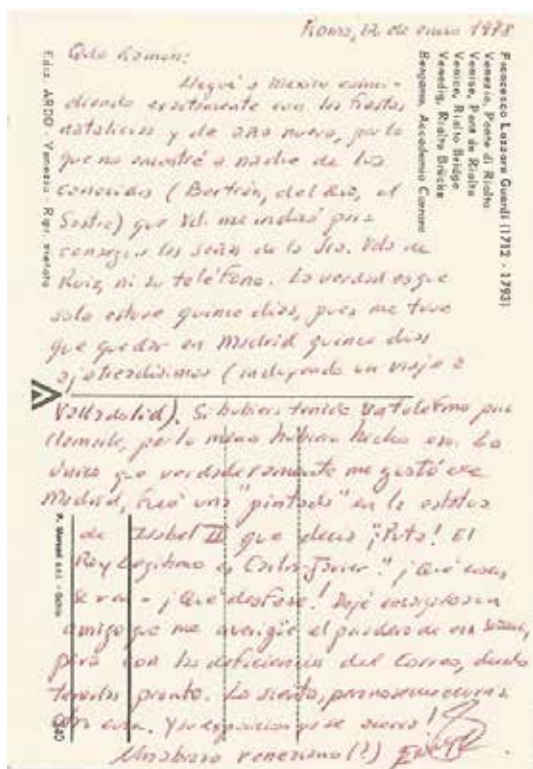 Roma, 12 de enero 1978
Qdo Ramón:
Llegué a Mexico coinci-
diendo exactamente con las fiestas
natalicias y de año nuevo, por lo
que no encontré a nadie de los
conocidos (Bertrán, del Rio, el
Sastre) que Vd. me indicó para
conseguir las señas de la Sra. Vda de
Ruiz, ni su teléfono. La verdad es que
solo estuve quince dias, pues me tuve
que quedar en Madrid quince dias
ajetreadisimos (incluyendo un viaje a
Valladolid). Si hubiera tenido un telefono para
llamarle, por lo menos hubiera hecho eso. Lo
único que verdaderamente me gustó de
Madrid, fué una "pintada" en la estatua
de Isabel II que decia "¡Puta! El
Rey Legitimo es Carlos-Javier". ¡Qué cosas
se ven - ¡Qué desfase! Dejé a un
amigo que me averigüe el paradero de esa señora,
pero con las deficiencias del Correo, dudo
tenerlas pronto. Lo siento, pero no se me ocurre
otra cosa. Y su exposicion ya se acerca!
Un abrazo veneciano (?)
Francesco Lazzaro Guardi (1712 - 1793)
Venezia, Ponte di Rialto
Venise, Pont de Rialto
Venice, Rialto Bridge
Venedig, Rialto Brücke
Bergamo, Accademia Carrara
Ediz. ARDO Venezia - Ripr. vietata
340